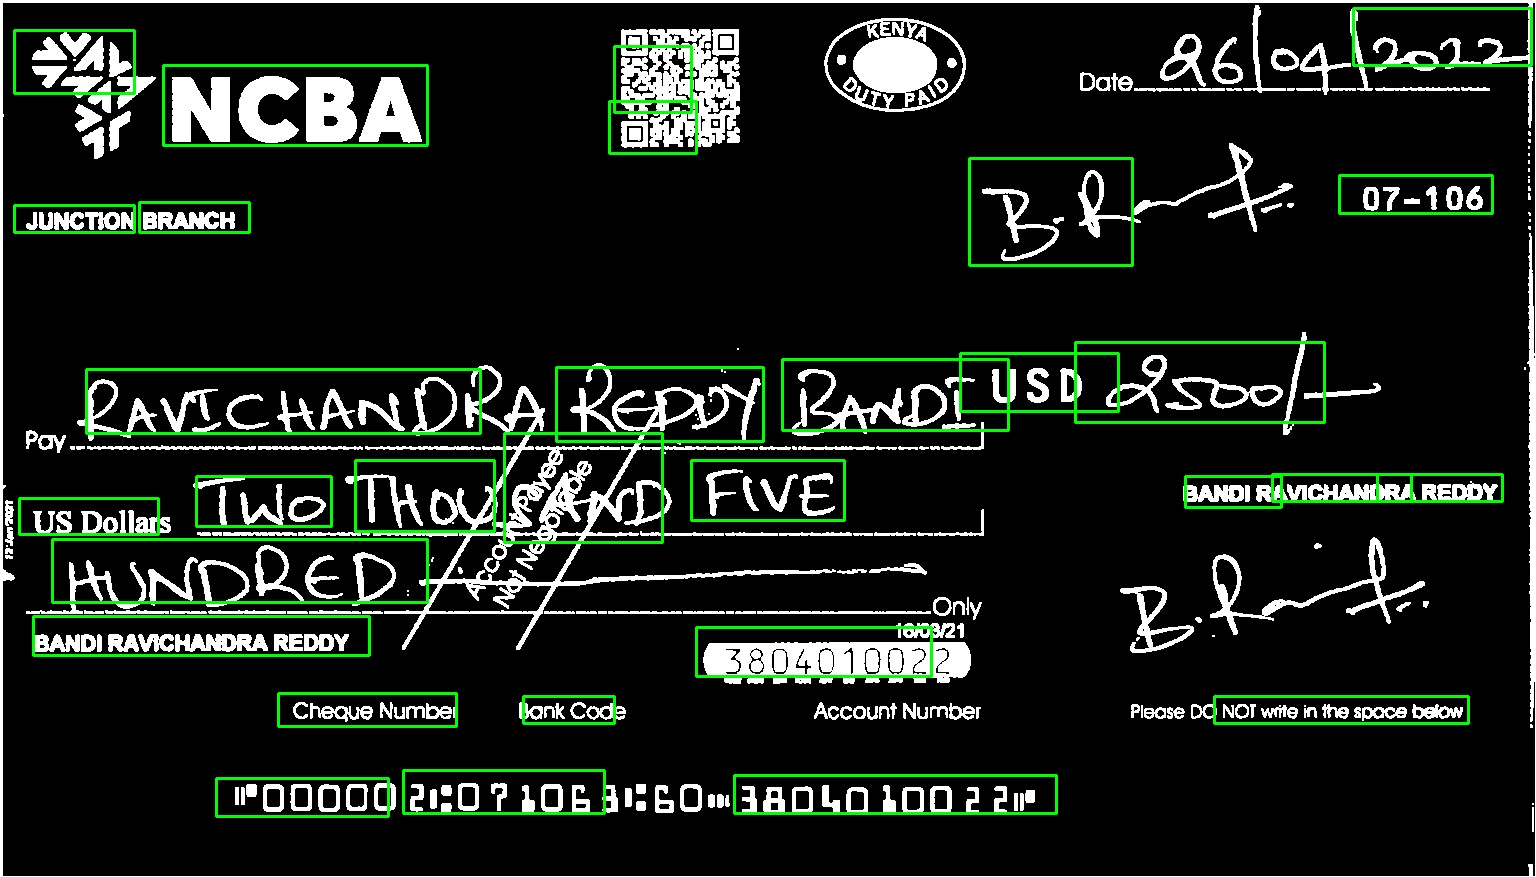 NCBA
KENYA
DUTY PAID
Date 26/04/2022
JUNCTION BRANCH
B. R
07-106
Pay RAVICHANDRA REDDY BANDI USD 2500/-
US Dollars TWO THOUSAND FIVE
BANDI RAVICHANDRA REDDY
HUNDRED
Only
Account Payee
Not Negotiable
BANDI RAVICHANDRA REDDY
16/03/21
3804010022
Cheque Number Bank Code Account Number Please DO NOT write in the space below
⑈000002⑆071063⑆60⑉3804010022⑈